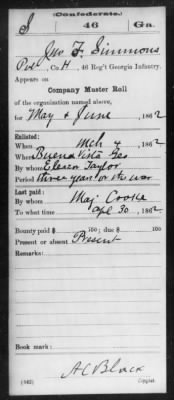 (Confederate.)
S 46 Ga.
Jno F. Simmons
Pvt, Co. H, 46 Reg't Georgia Infantry.
Appears on
Company Muster Roll
of the organization named above,
for May & June, 1862
Enlisted:
When Mch 4, 1862
Where Buena Vista Geo
By whom Taylor
Period three years or the war
Last paid:
By whom Maj Cooke
To what time Apl 30, 1862
Bounty paid $ 100; due $ 100
Present or absent Present
Remarks:
Book mark:
(642) A C Black
Copyist.